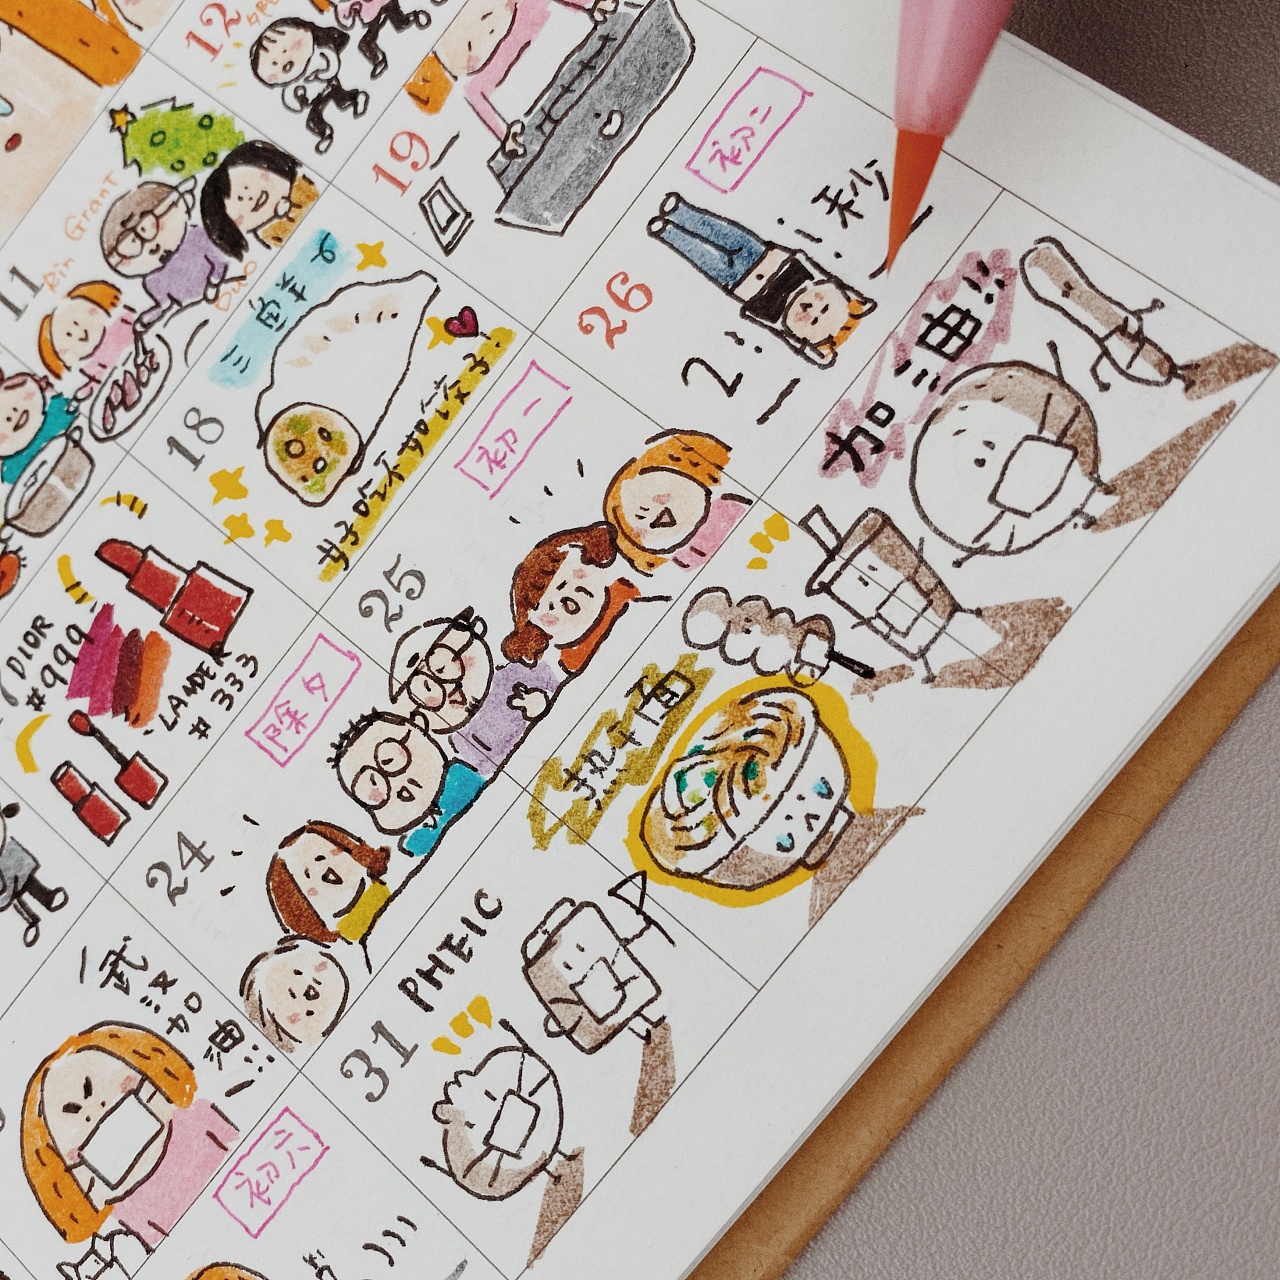 12
19
初二
26
秒
2
11
Grant
三角羊
18
好好吃不如吃饺子
初一
25
加油!!
DIOR
#999
#333
除夕
24
热干面
武汉
加油!!
PHEIC
31
初六